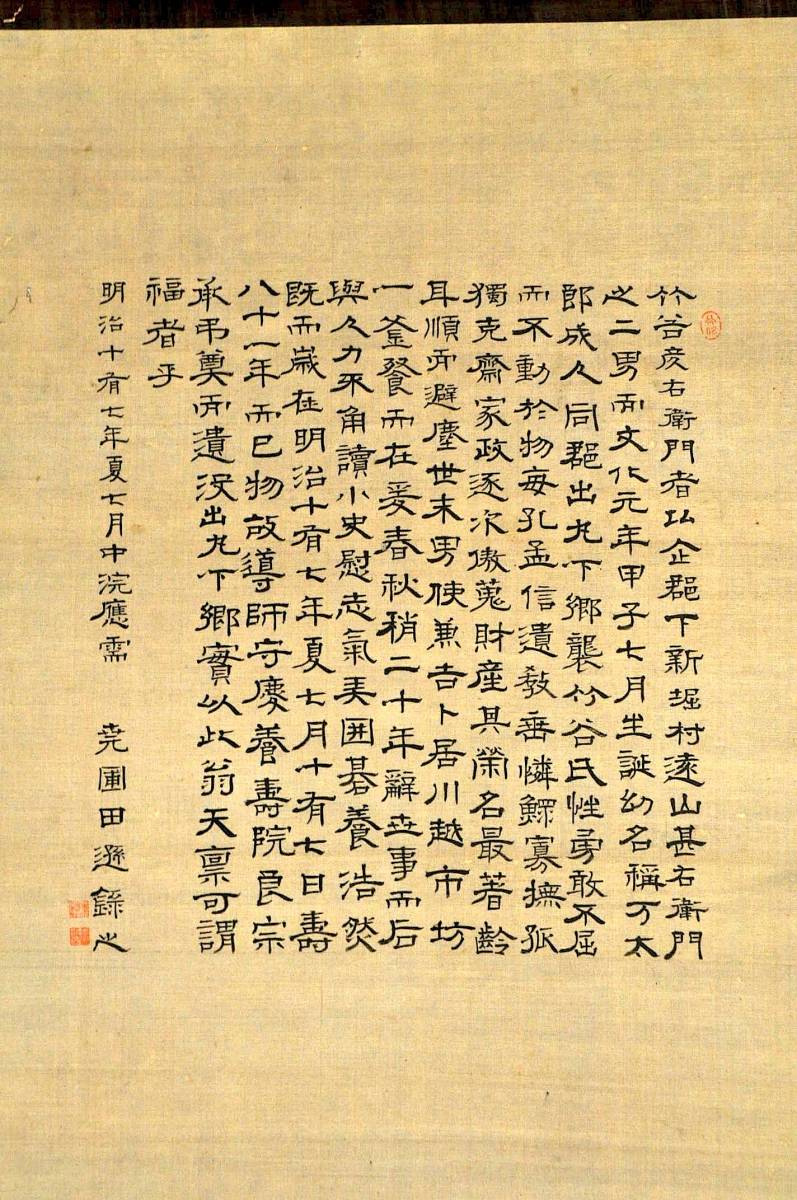 竹谷彦右衛門者比企郡下新堀村遠山甚右衛門
之二男而文化元年甲子七月生誕幼名稱万太
郎成人同郡出丸下郷襲竹谷氏性勇敢不屈
而不動於物毎孔孟信遺教垂憐鰥寡撫孤
獨克齋家政逐次傚蒐財産其榮名最著齡
耳順而避塵世末男使兼吉卜居川越市坊
一釜餐而在爰春秋稍二十年辭世事而后
與人力不角讀小史慰志氣弄囲碁養浩然
既而歳在明治十有七年夏七月十有七日壽
八十一年而已物故導師守慶養壽院良宗
承弔奠而遺沒出丸下郷實以此翁天禀可謂
福者乎
明治十有七年夏七月中浣應需 堯圃田遜錄之